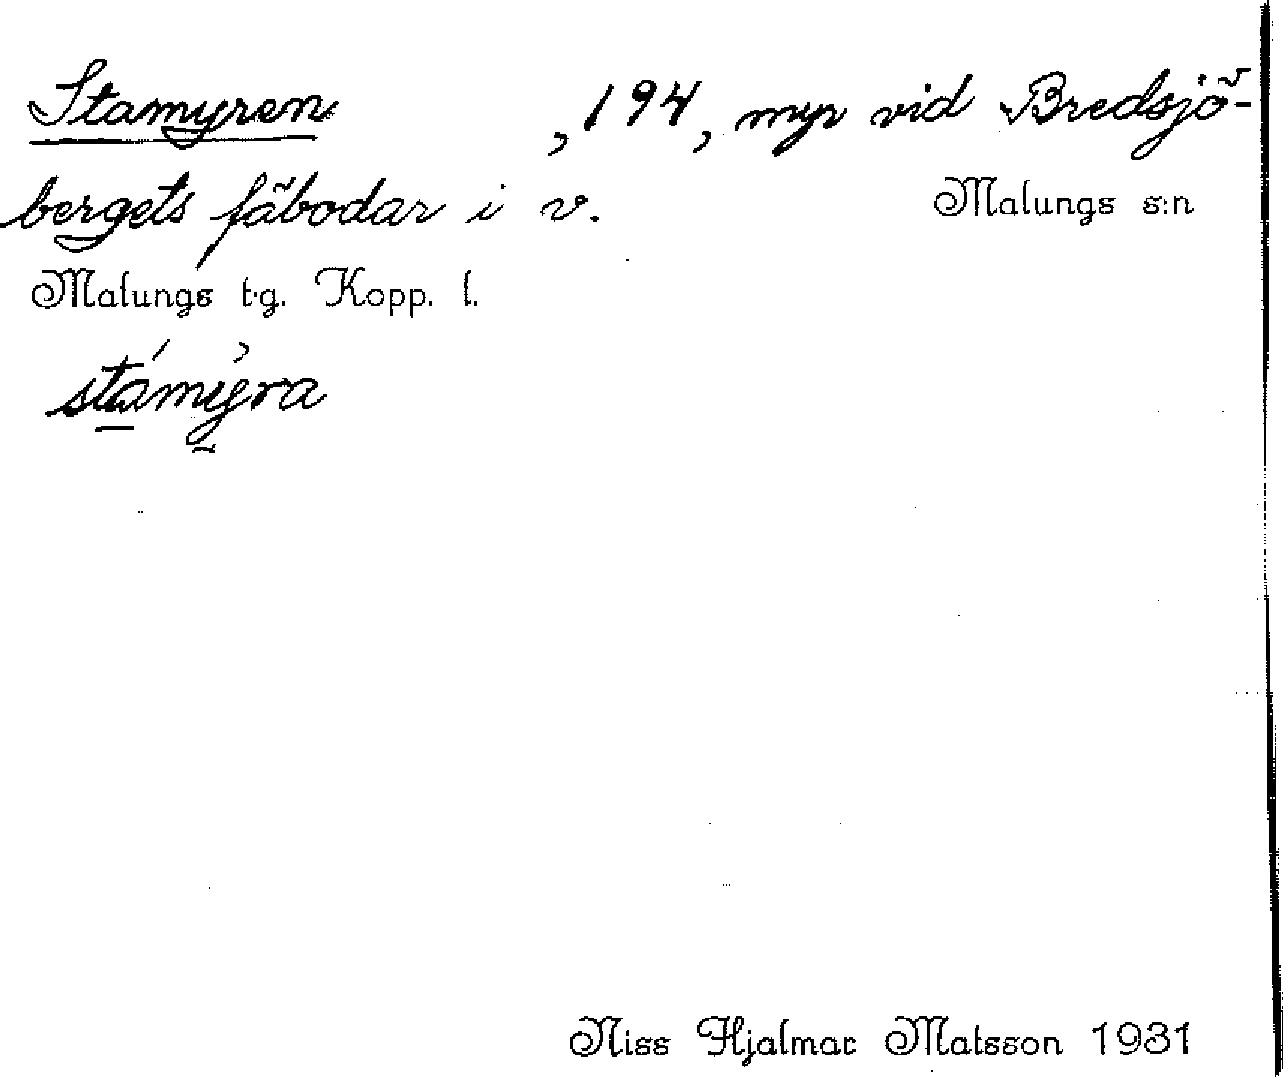 Stamyren , 194, myr vid Bredsjö-
bergets fäbodar i v. Malungs s:n
Malungs t.g. Kopp. l.
stamyra
Niss Hjalmar Matsson 1931